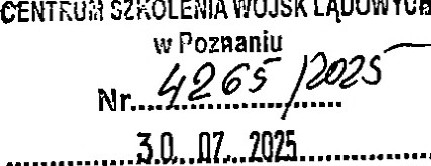 CENTRUM SZKOLENIA WOJSK LĄDOWYCH
w Poznaniu
Nr....4265/2025
30. 07. 2025